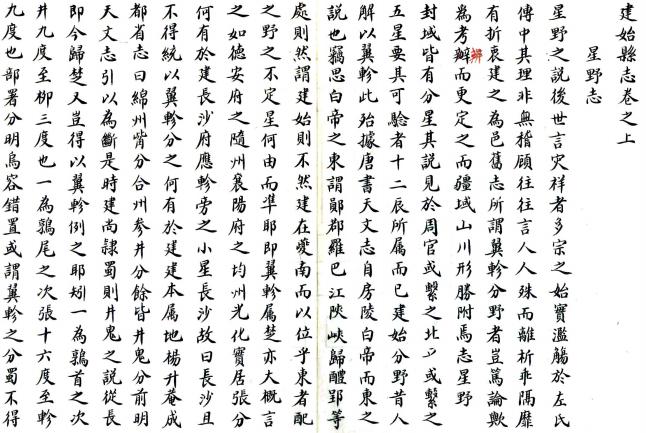 建始縣志卷之上
星野志
星野之說後世言灾祥者多宗之始實濫觴於左氏
傳中其理非無稽顧往往言人人殊而離析乖隔靡
有折衷建之為邑舊志所謂翼軫分野者豈篤論歟
為考辧而更定之而疆域山川形勝附焉志星野
辨
封域皆有分星其說見於周官或繫之北斗或繫之
五星要其可驗者十二辰所属而已建始分野昔人
解以翼軫此殆據唐書天文志自房陵白帝而東之
說也竊思白帝之東謂鄖郡羅巴江陝峽歸醴郢等
處則然謂建始則不然建在夔南而以位乎東者配
之野之不定星何由而凖耶即翼軫属楚亦大概言
之如德安府之隨州襄陽府之均州光化實居張分
何有於建長沙府應軫旁之小星長沙故曰長沙且
不得統以翼軫分之何有於建建本属地楊升菴成
都省志曰綿州觜分合州参井分餘皆井鬼分前明
天文志引以為斷是時建尚隷蜀則井鬼之說從長
即今歸楚又豈得以翼軫例之耶矧一為鶉首之次
井九度至柳三度也一為鶉尾之次張十六度至軫
九度也部署分明烏容錯置或謂翼軫之分蜀不得